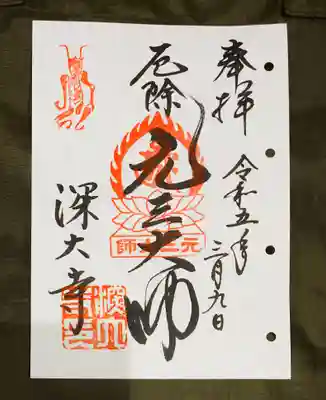 奉拝
令和五年
三月九日
厄除
元三大師
元三大師
深大寺